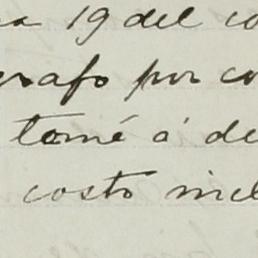 19 del co
grafo por co
tomé á de
costo incl